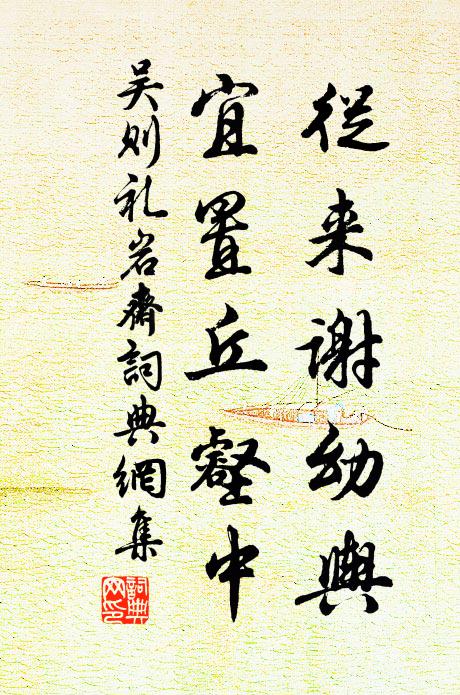 從来謝幼輿
宜置丘壑中
吴则礼岩齋詞典網集
詞典网印